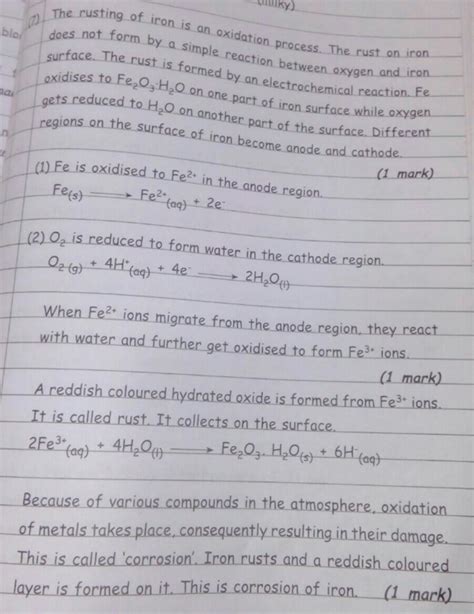 (7) The rusting of iron is an oxidation process. The rust on iron
does not form by a simple reaction between oxygen and iron
surface. The rust is formed by an electrochemical reaction. Fe
oxidises to Fe₂O₃.H₂O on one part of iron surface while oxygen
gets reduced to H₂O on another part of the surface. Different
regions on the surface of iron become anode and cathode.
(1 mark)
(1) Fe is oxidised to Fe²⁺ in the anode region.
Fe(s) ⟶ Fe²⁺(aq) + 2e⁻
(2) O₂ is reduced to form water in the cathode region.
O₂(g) + 4H⁺(aq) + 4e⁻ ⟶ 2H₂O(l)
When Fe²⁺ ions migrate from the anode region, they react
with water and further get oxidised to form Fe³⁺ ions.
(1 mark)
A reddish coloured hydrated oxide is formed from Fe³⁺ ions.
It is called rust. It collects on the surface.
2Fe³⁺(aq) + 4H₂O(l) ⟶ Fe₂O₃. H₂O(s) + 6H⁺(aq)
Because of various compounds in the atmosphere, oxidation
of metals takes place, consequently resulting in their damage.
This is called 'corrosion'. Iron rusts and a reddish coloured
layer is formed on it. This is corrosion of iron. (1 mark)